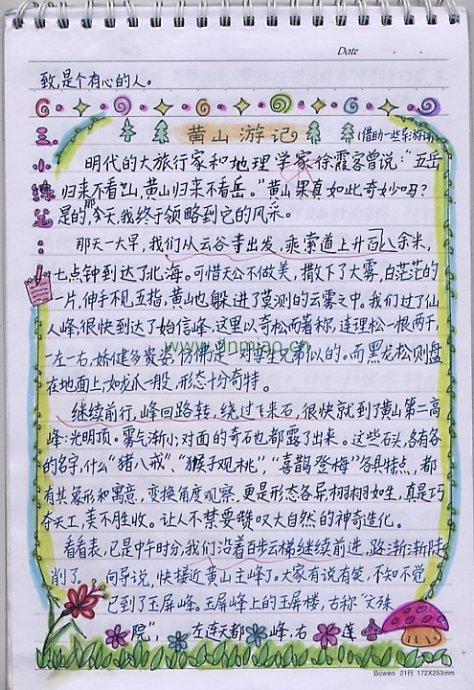 Date
致,是个有心的人。
黄山游记(借助一些导游词)
三、小练笔:
明代的大旅行家和地理学家徐霞客曾说:"五岳
归来不看山,黄山归来不看岳。"黄山果真如此奇妙吗?
是的,那今天,我终于领略到它的风采。
那天一大早,我们从云谷寺出发,乘索道上升百八余米,
七点钟到达了北海。可惜天公不做美,撒下了大雾,白茫茫的
一片,伸手不见五指,黄山也躲进了莫测的云雾之中。我们过了仙
人峰,很快到达了始信峰。这里以奇松而著称,连理松一根两干,
一左一右,娇健多姿,仿佛是一对孪生兄弟似的。而黑龙松则盘
在地面上,如龙爪一般,形态十分奇特。
www.dnmiao.cn
继续前行,峰回路转,绕过飞来石,很快就到了黄山第二高
峰:光明顶。雾气渐小,对面的奇石也都露了出来。这些石头,各有各
的名字,什么"猪八戒"、"猴子观桃","喜鹊登梅"各具特点,都
有其象形和寓意,变换角度观察,更是形态各异栩栩如生,真是巧
夺天工,美不胜收。让人不禁要叹大自然的神奇造化。
看看表,已是中午时分,我们沿着百步云梯继续前进,路渐渐陡
削了。向导说,快接近黄山主峰了。大家有说有笑,不知不觉
已到了玉屏峰。玉屏峰上的玉屏楼,古称"文殊
院",左连天都峰,右莲
Bowen 21行 172X253mm